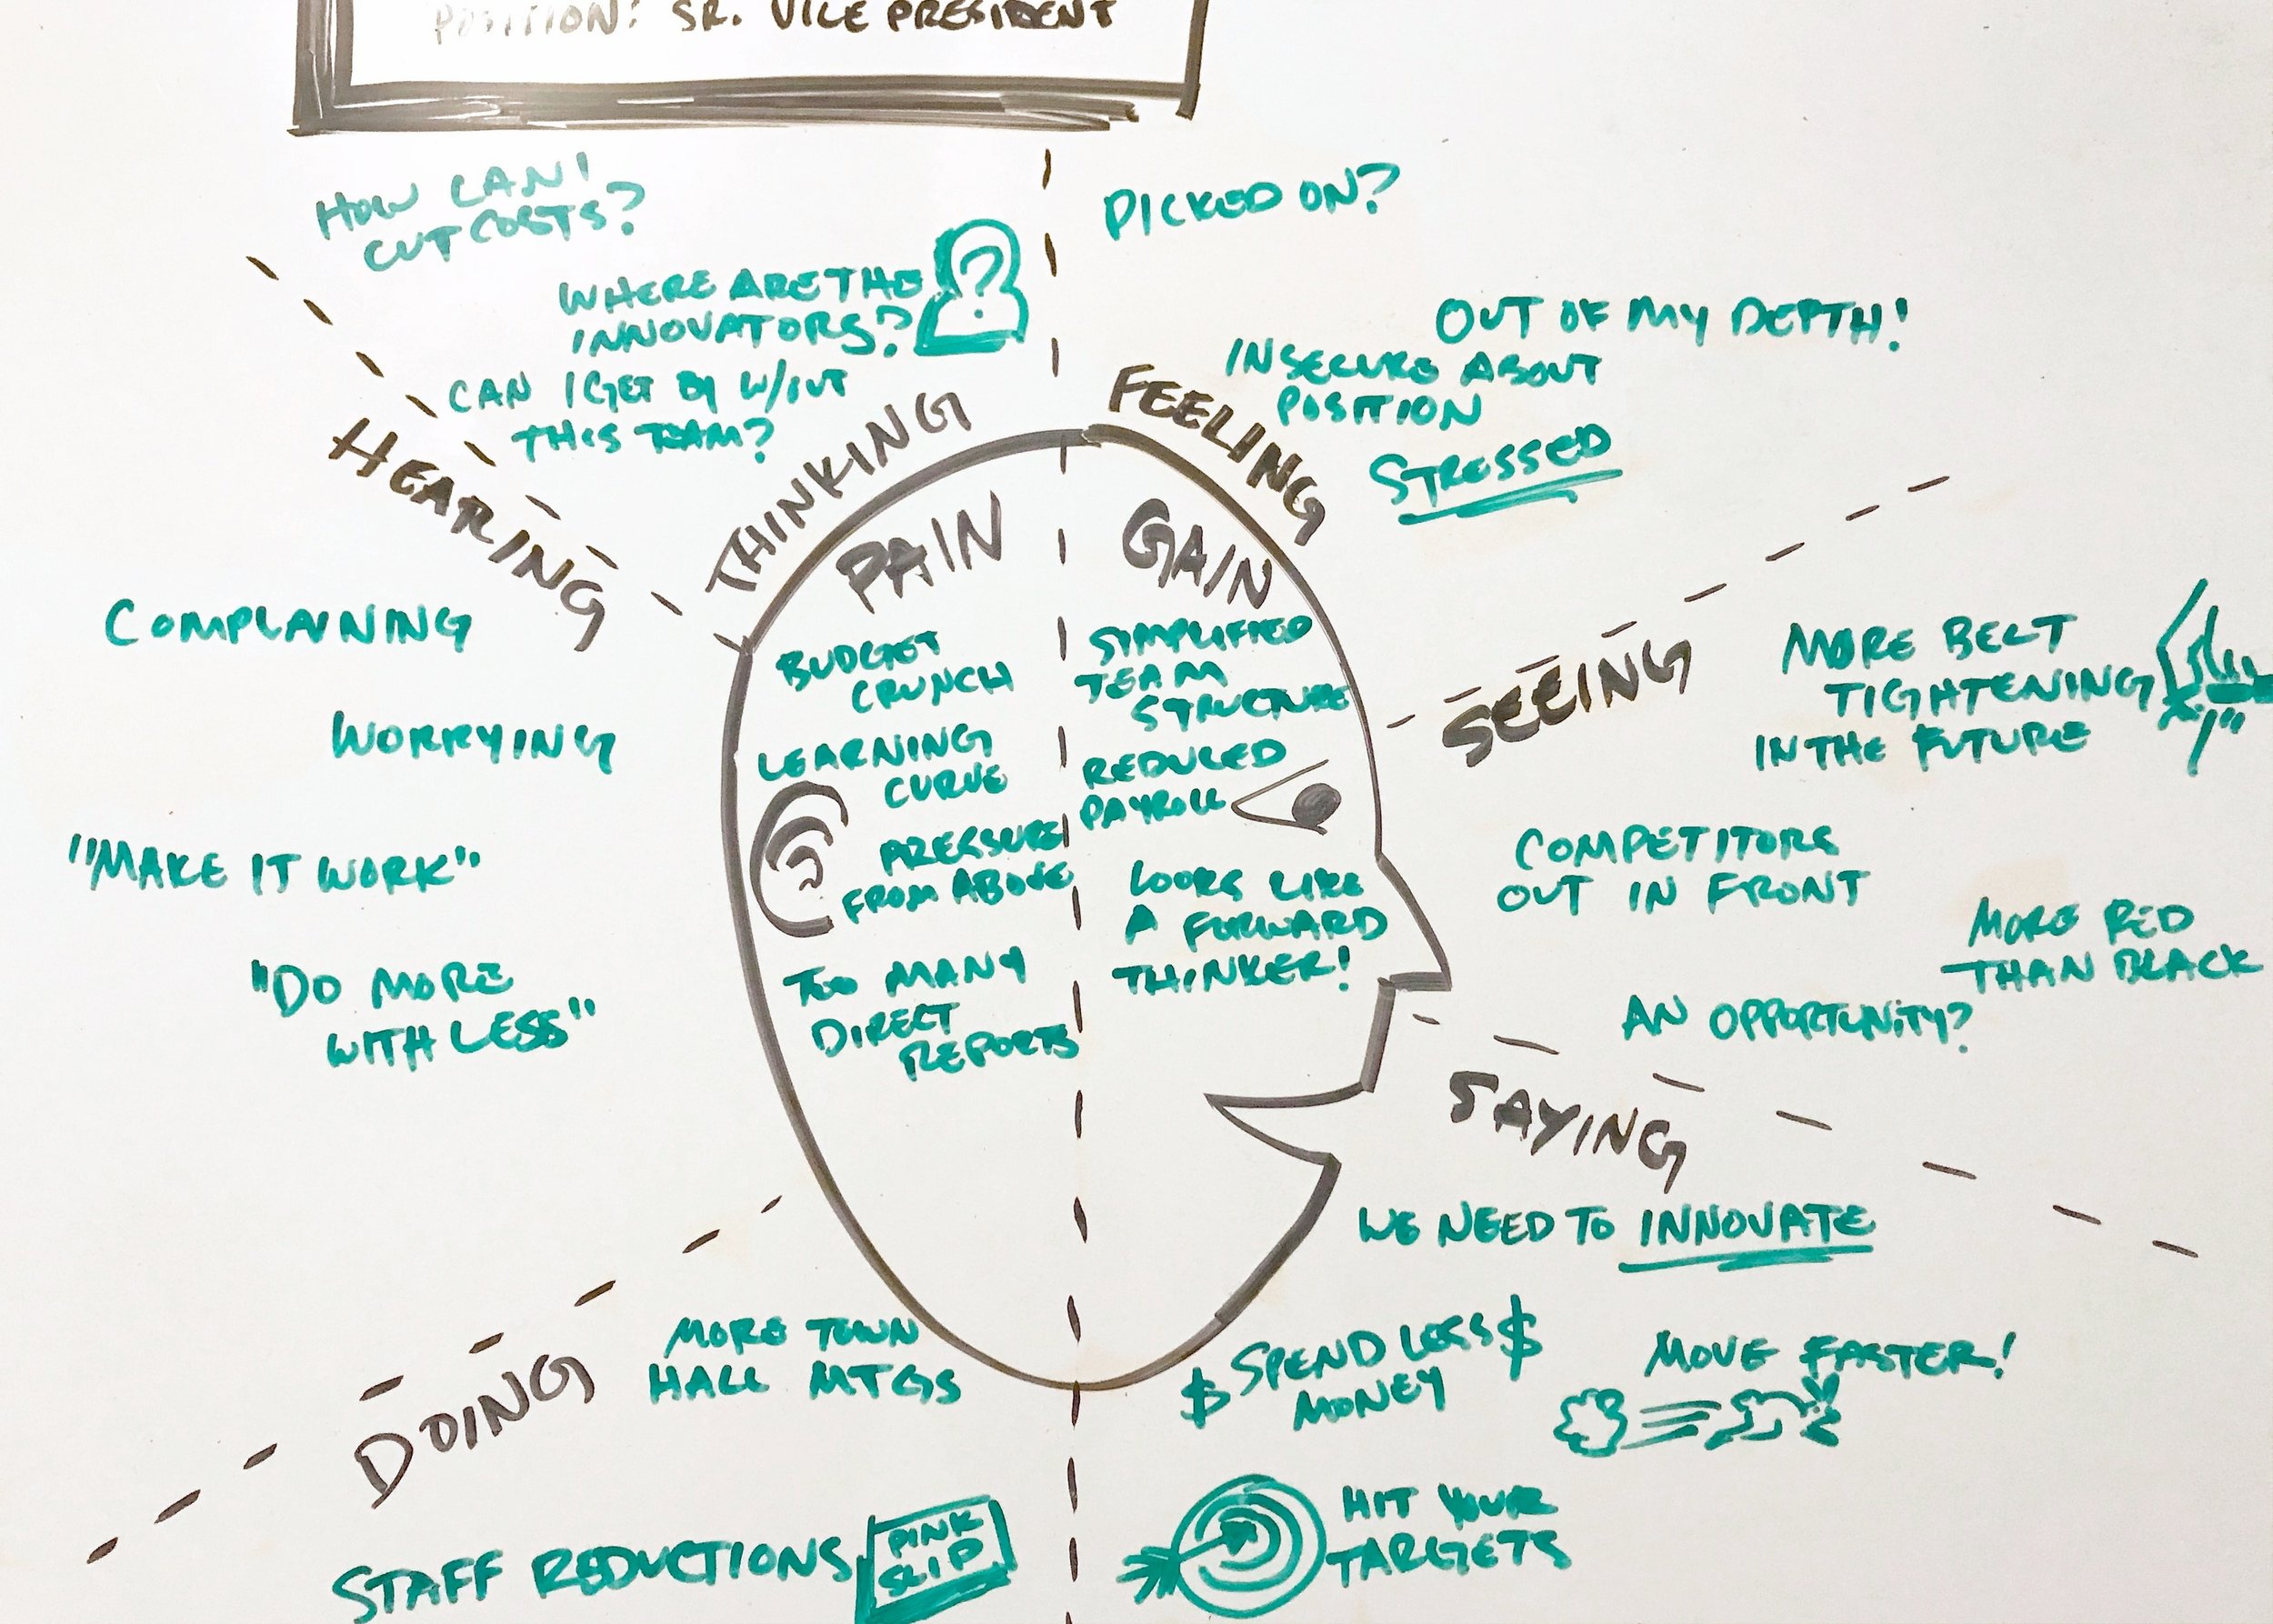 POSITION: SR. VICE PRESIDENT
HOW CAN I
CUT COSTS?
WHERE ARE THE
INNOVATORS?
?
CAN I GET BY W/OUT
THIS TEAM?
THINKING
PICKED ON?
OUT OF MY DEPTH!
INSECURE ABOUT
POSITION
STRESSED
FEELING
HEARING
COMPLAINING
WORRYING
"MAKE IT WORK"
"DO MORE
WITH LESS"
PAIN
BUDGET
CRUNCH
LEARNING
CURVE
PRESSURE
FROM ABOVE
TOO MANY
DIRECT
REPORTS
GAIN
SIMPLIFIED
TEAM
STRUCTURE
REDUCED
PAYROLL
LOOKS LIKE
A FORWARD
THINKER!
SEEING
MORE BELT
TIGHTENING
IN THE FUTURE
COMPETITORS
OUT IN FRONT
MORE RED
THAN BLACK
AN OPPORTUNITY?
SAYING
WE NEED TO INNOVATE
$ SPEND LESS $
MONEY
MOVE FASTER!
HIT YOUR
TARGETS
DOING
MORE TOWN
HALL MTGS
STAFF REDUCTIONS
PINK
SLIP